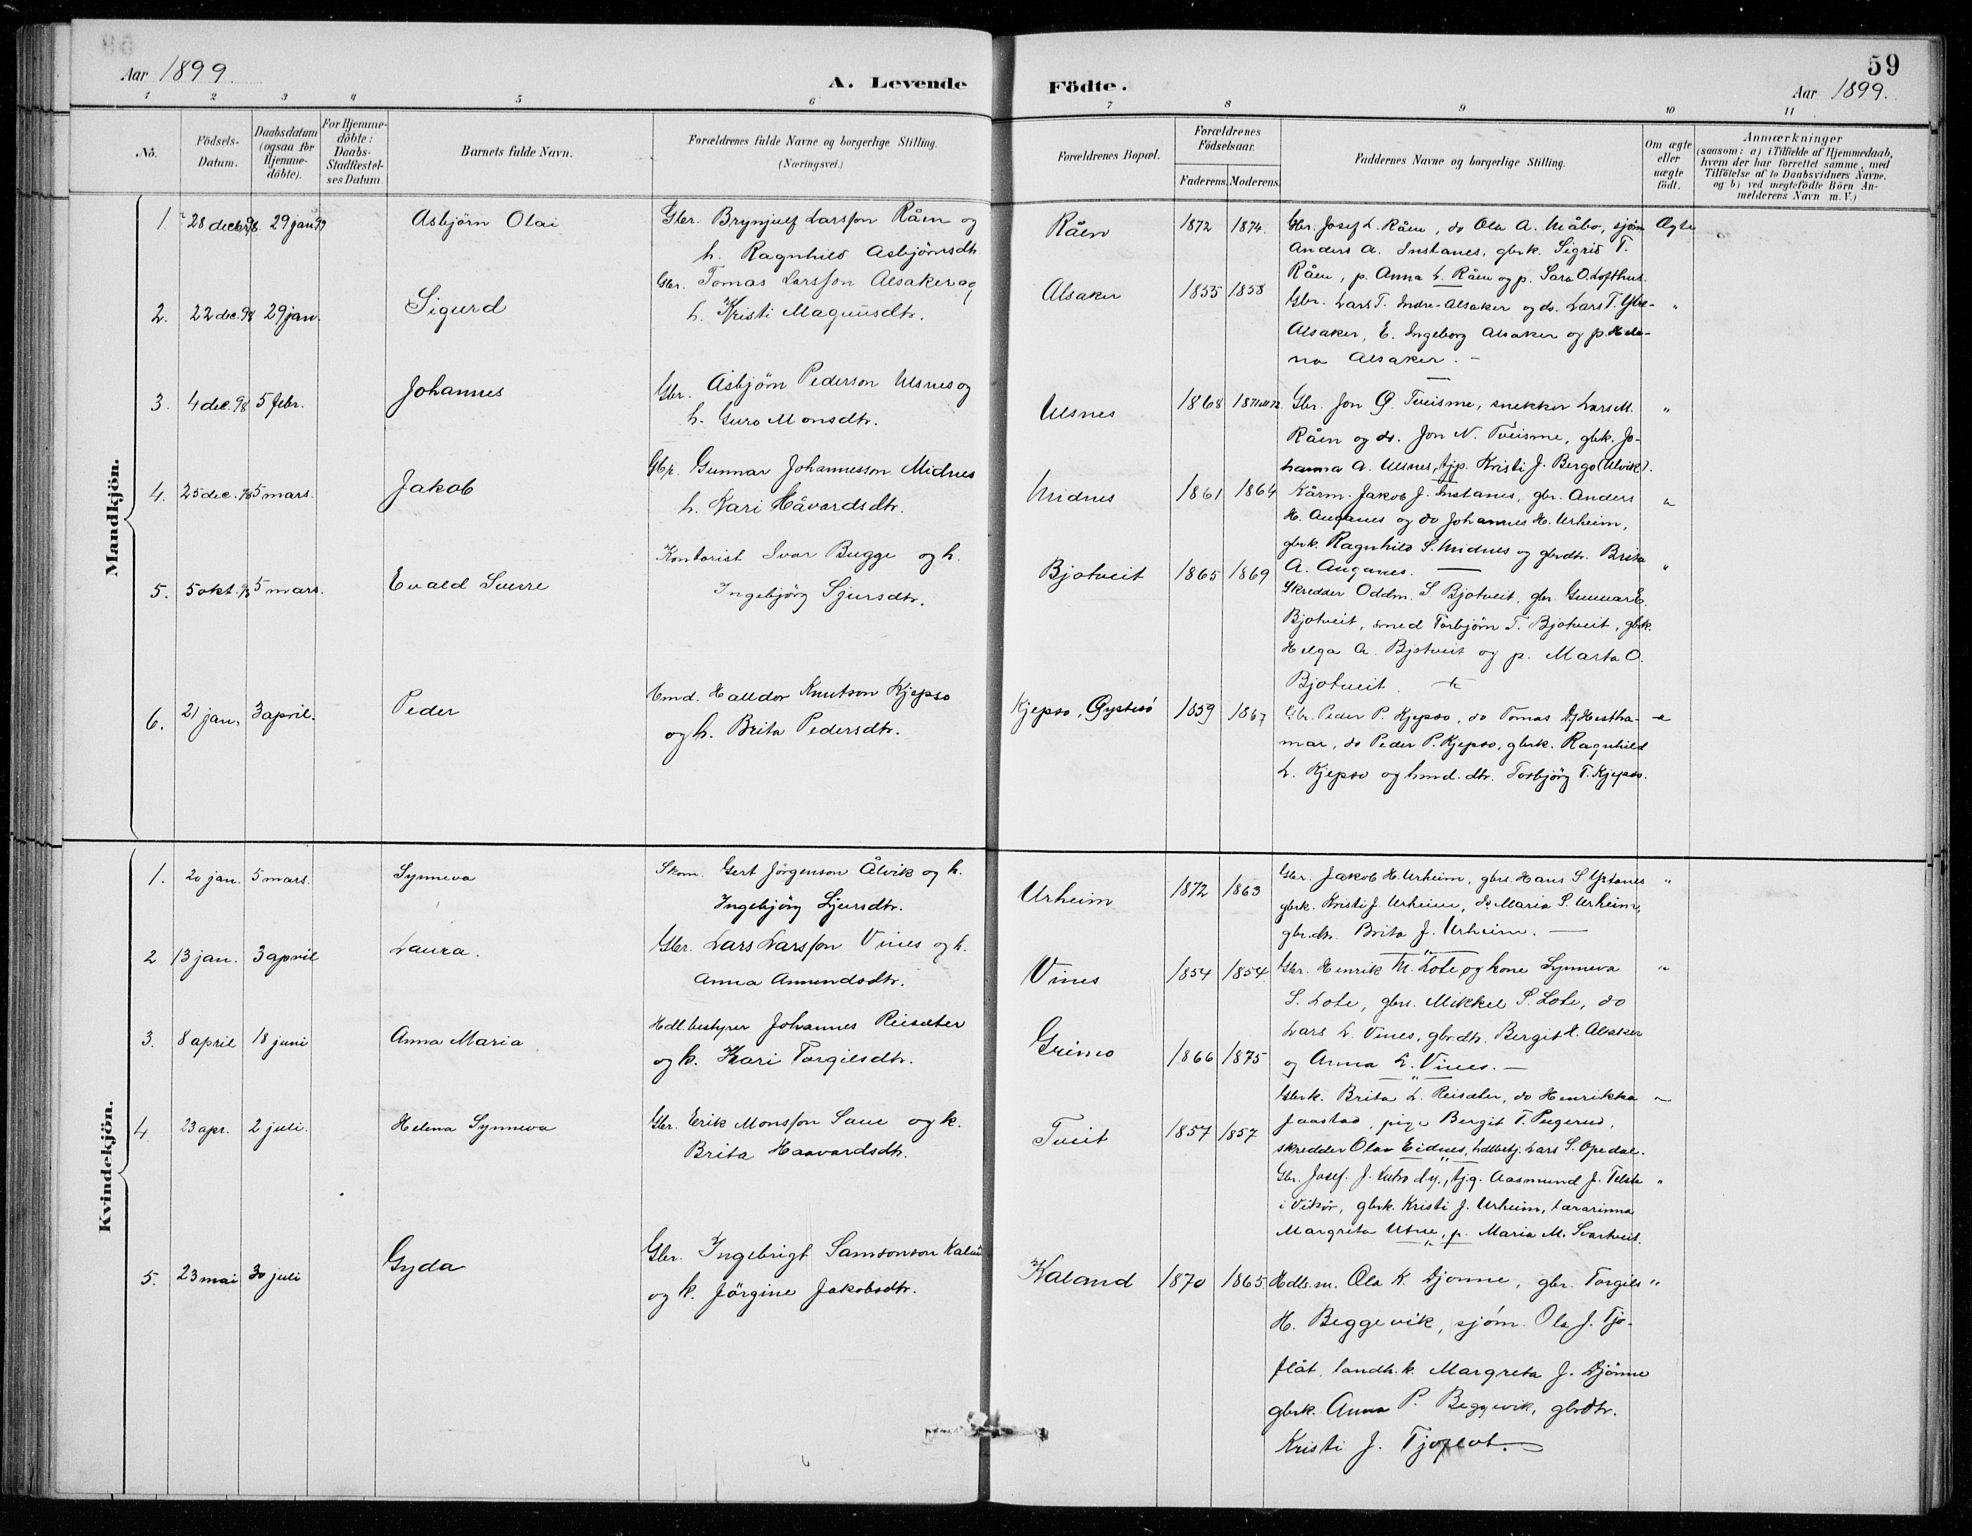 59
Aar 1899.
A. Levende Födte.
Aar 1899.
1 2 3 4 5 6 7 8 9 10 11
No.
Födsels-
Datum.
Daabsdatum
(ogsaa for
Hjemme-
döbte).
For Hjemme-
döbte:
Daabs-
Stadfæstel-
ses Datum.
Barnets fulde Navn.
Forældrenes fulde Navne og borgerlige Stilling.
(Næringsvei.)
Forældrenes Bopæl.
Forældrenes
Födselsaar.
Faderens. Moderens.
Faddernes Navne og borgerlige Stilling.
Om ægte
eller
uægte
födt.
Anmærkninger
(saasom: a) i Tilfælde af Hjemmedaab,
hvem der har forrettet samme, med
Tilföielse af to Daabsvidners Navne,
og b) ved uægtefödte Börn An-
melderens Navn m. V.)
Mandkjön.
1. 28 decbr 98. 29 jan 99 Asbjörn Olai
Gbr. Brynjulf Larsson Råen og
h. Ragnhild Asbjörnsdtr.
Råen 1872 1874.
Gbr. Josef L. Råen, do Ola A. Måbo, sjöm
Anders A. Instanes, gbrk. Sigrid T.
Råen, p. Anna L. Råen og p. Sara O. Lofthus.
Ægte
2. 22 dec. 98 29 jan. Sigurd
Gbr. Tomas Larsson Alsaker og
h. Kristi Magnusdtr.
Alsaker 1855 1858
Gbr. Lars T. Indre-Alsaker og do. Lars T. Ytre-
Alsaker, E. Ingeborg Alsaker og p. Hele-
na Alsaker. –
"
3. 4 dec. 98 5 febr. Johannes
Gbr. Asbjörn Pederson Ulsnes og
h. Guro Monsdtr.
Ulsnes 1868
Gbr. Jon G. Tveisme, snekker Lars M.
Råen og do. Jon N. Tveisme, gbrk. Jo-
hanna A. Ulsnes, tjp. Kristi J. Bergo (Ulvik).
"
4. 25 dec. 98 5 mars. Jakob
Gbr. Gunnar Johannesson Midnes
h. Kari Håvardsdtr.
Midnes 1861 1864
Kårm. Jakob J. Instanes, gbr. Anders
H. Auganes og do Johannes H. Urheim,
gbrk. Ragnhild S. Midnes og gbrdtr. Brita
A. Auganes.
"
5. 5 okt. 98 5 mars. Evald Sverre
Kontorist Ivar Bugge og h.
Ingebjörg Sjursdtr.
Bjotveit 1865 1869
Skredder Oddm. S. Bjotveit, gbr. Gunnar E.
Bjotveit, smed Torbjörn T. Bjotveit, gbrk.
Helga A. Bjotveit og p. Marta O.
Bjotveit.
"
6. 21 jan. 3 april. Peder
Hmd. Halldor Knutson Kjepso
og h. Brita Pedersdtr.
Kjepso, Öystesö 1859 1867
Gbr. Peder P. Kjepso, do Tomas Hestha-
mar, do Peder P. Kjepso, gbrk. Ragnhild
L. Kjepso og hmd. dtr. Torbjörg T. Kjepso.
Kvindekjön.
1. 20 jan. 5 mars. Synneva
Skom. Gert Jörgenson Ålvik og h.
Ingebjörg Sjursdtr.
Urheim 1872 1863
Gbr. Jakob H. Urheim, gbrs. Hans S. Ystanes
gbrk. Kristi J. Urheim, do Maria S. Urheim,
gbrdtr. Brita J. Urheim. –
"
2 13 jan. 3 april Laura.
Gbr. Lars Larsson Vines og h.
Anna Amundsdtr.
Vines 1854 1854.
Gbr. Henrik M. Lote og kone Synneva
S. Lote, gbrs. Mikkel S. Lote, do
Lars L. Vines, gbrdtr. Bergit H. Alsaker
og Anna L. Vines. –
"
3. 8 april 18 juni Anna Maria
Hdl.bestyrer Johannes Reisæter
og k. Kari Torgilsdtr.
Grimo 1866 1875
Gbrk. Brita L. Reisæter, do Henrikka
Jaastad, pige Bergit T.
skredder Olav Eidnes, hdlbestj. Lars S. Opedal.
4. 23 apr. 2 juli. Helena Synneva
Gbr. Erik Monsson Saue og k.
Brita Haavardsdtr.
Tveit 1857 1857
Gbr. Josef J. Lutro d.y., tjg. Aasmund J. Telste
i Vikör, gbrk. Kristi J. Urheim, lærarinna
Margreta Utne, p. Maria M. Svartveit.
"
5. 23 mai 30 juli Gyda
Gbr. Ingebrigt Samsonson Kaland
og k. Jörgine Jakobsdtr.
Kaland 1870 1865.
Hdls.m. Ola K. Djonne, gbr. Torgils
H. Beggevik, sjöm. Ola J. Tjo-
flåt, landh.k. Margreta J. Djönne
gbrk. Anna P. Beggevik, gbrdtr.
Kristi J. Tjoflot.
"